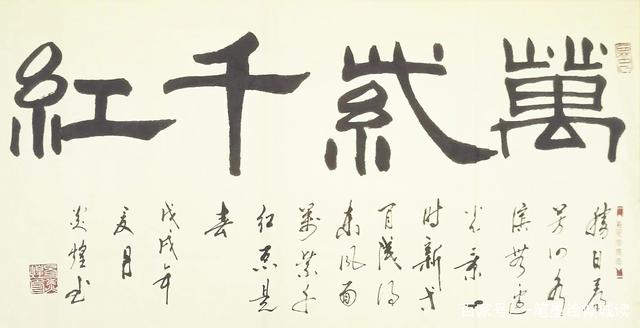 萬紫千紅
勝日尋
芳泗水
濱無邊
光景一
时新等
闲識得
東風面
萬紫千
紅总是
春
戊戌年
夏月
炎煌书
百家号/笔墨